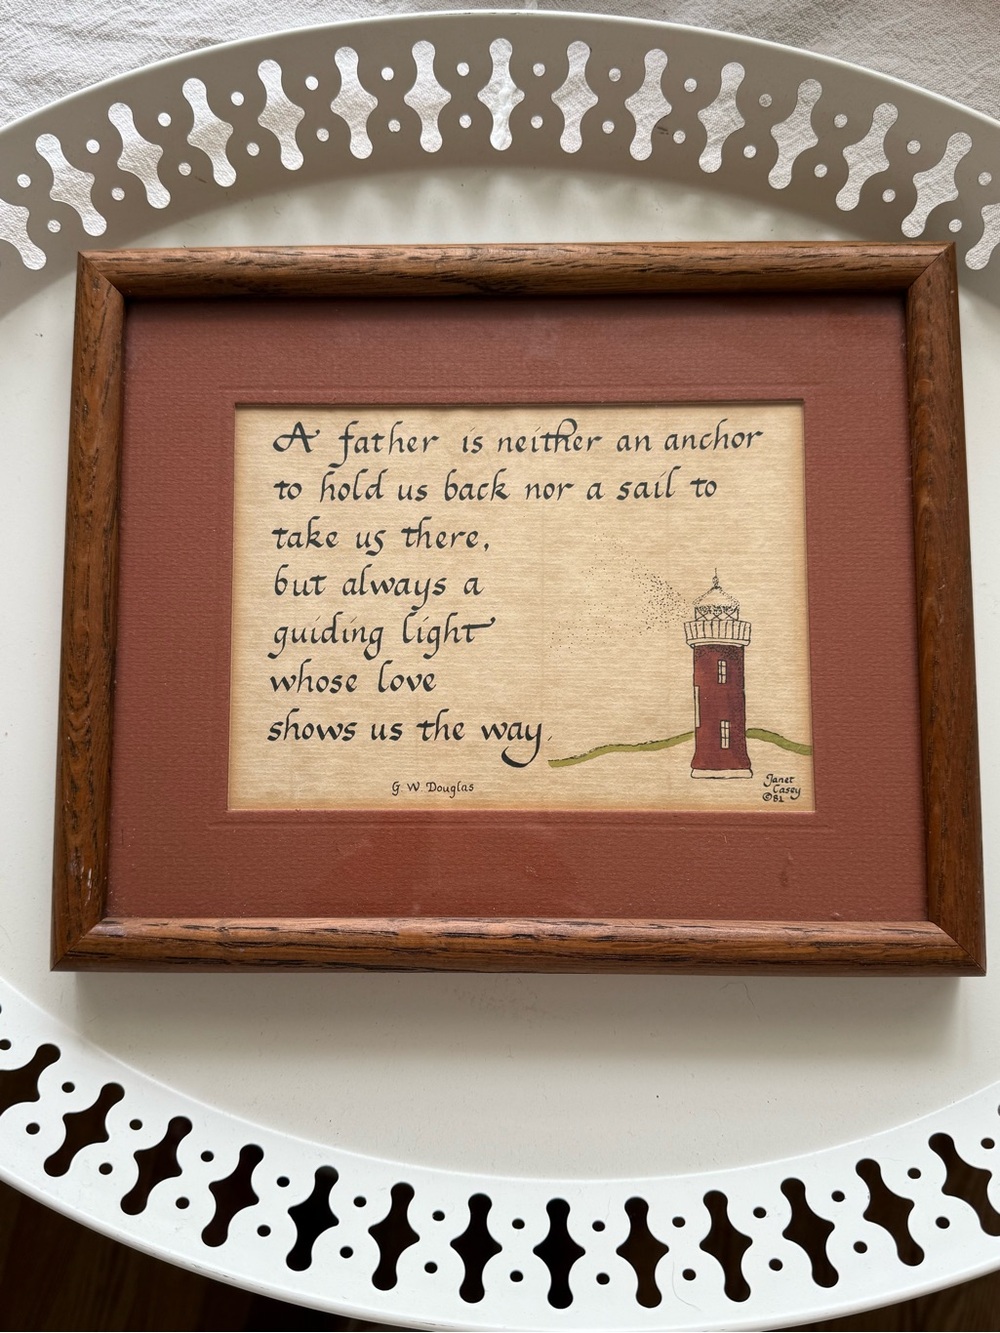 A father is neither an anchor
to hold us back nor a sail to
take us there,
but always a
guiding light
whose love
shows us the way.
G. W. Douglas
Janet
Casey
©81